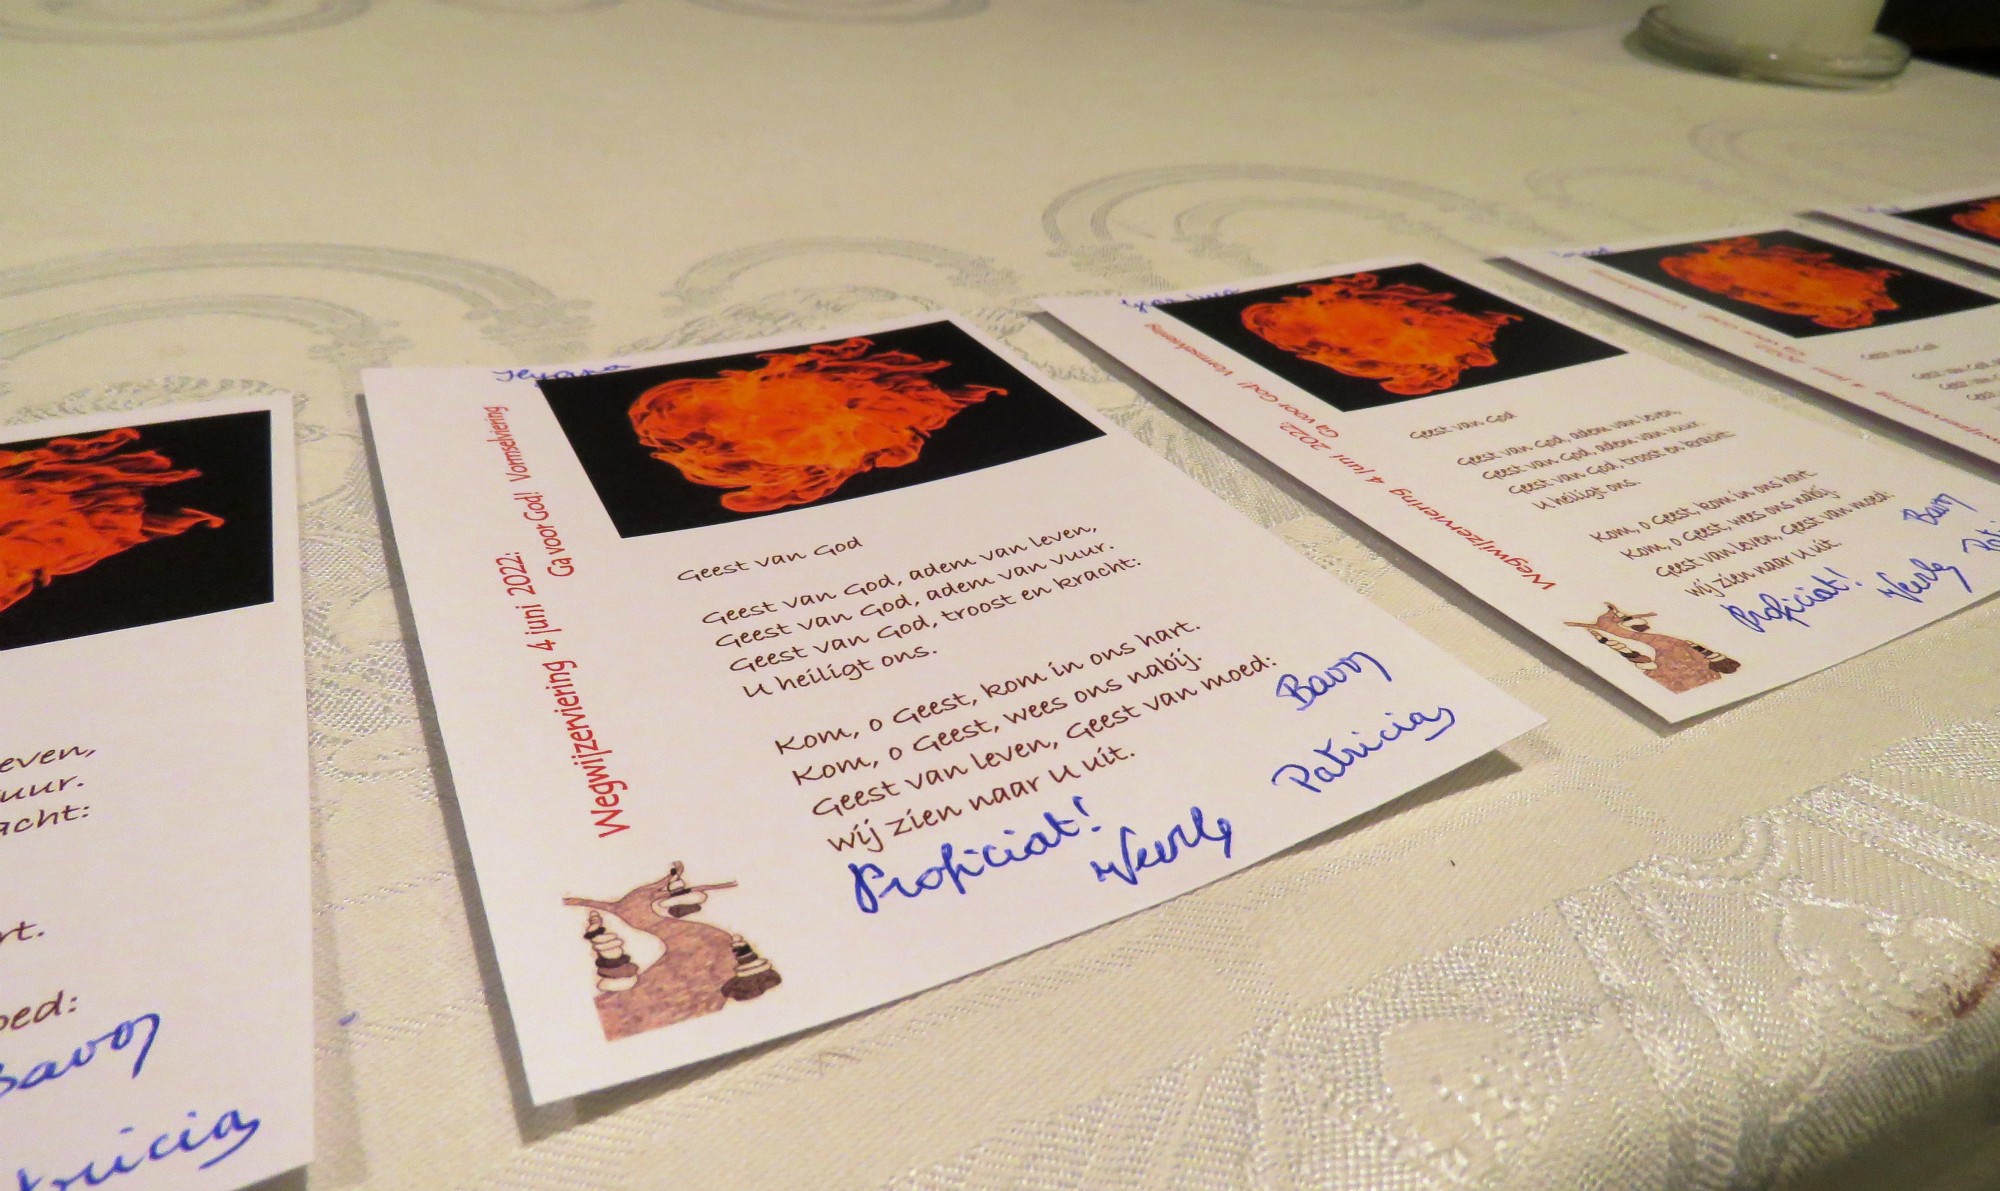 even,
uur.
acht:
rt.
oed:
Bavon
tricia
Wegwijzerviering 4 juni 2022:
Ga voor God! Vormselviering
Geest van God
Geest van God, adem van leven,
Geest van God, adem van vuur.
Geest van God, troost en kracht:
U heiligt ons.
Kom, o Geest, kom in ons hart.
Kom, o Geest, wees ons nabij.
Geest van leven, Geest van moed:
wij zien naar U uit.
Proficiat!
Veerle
Bavon
Patricia
Wegwijzerviering 4 juni 2022:
Ga voor God! Vormselviering
Geest van God
Geest van God, adem van leven,
Geest van God, adem van vuur.
Geest van God, troost en kracht:
U heiligt ons.
Kom, o Geest, kom in ons hart.
Kom, o Geest, wees ons nabij.
Geest van leven, Geest van moed:
wij zien naar U uit.
Proficiat!
Veerle
Bavon
Geest van God